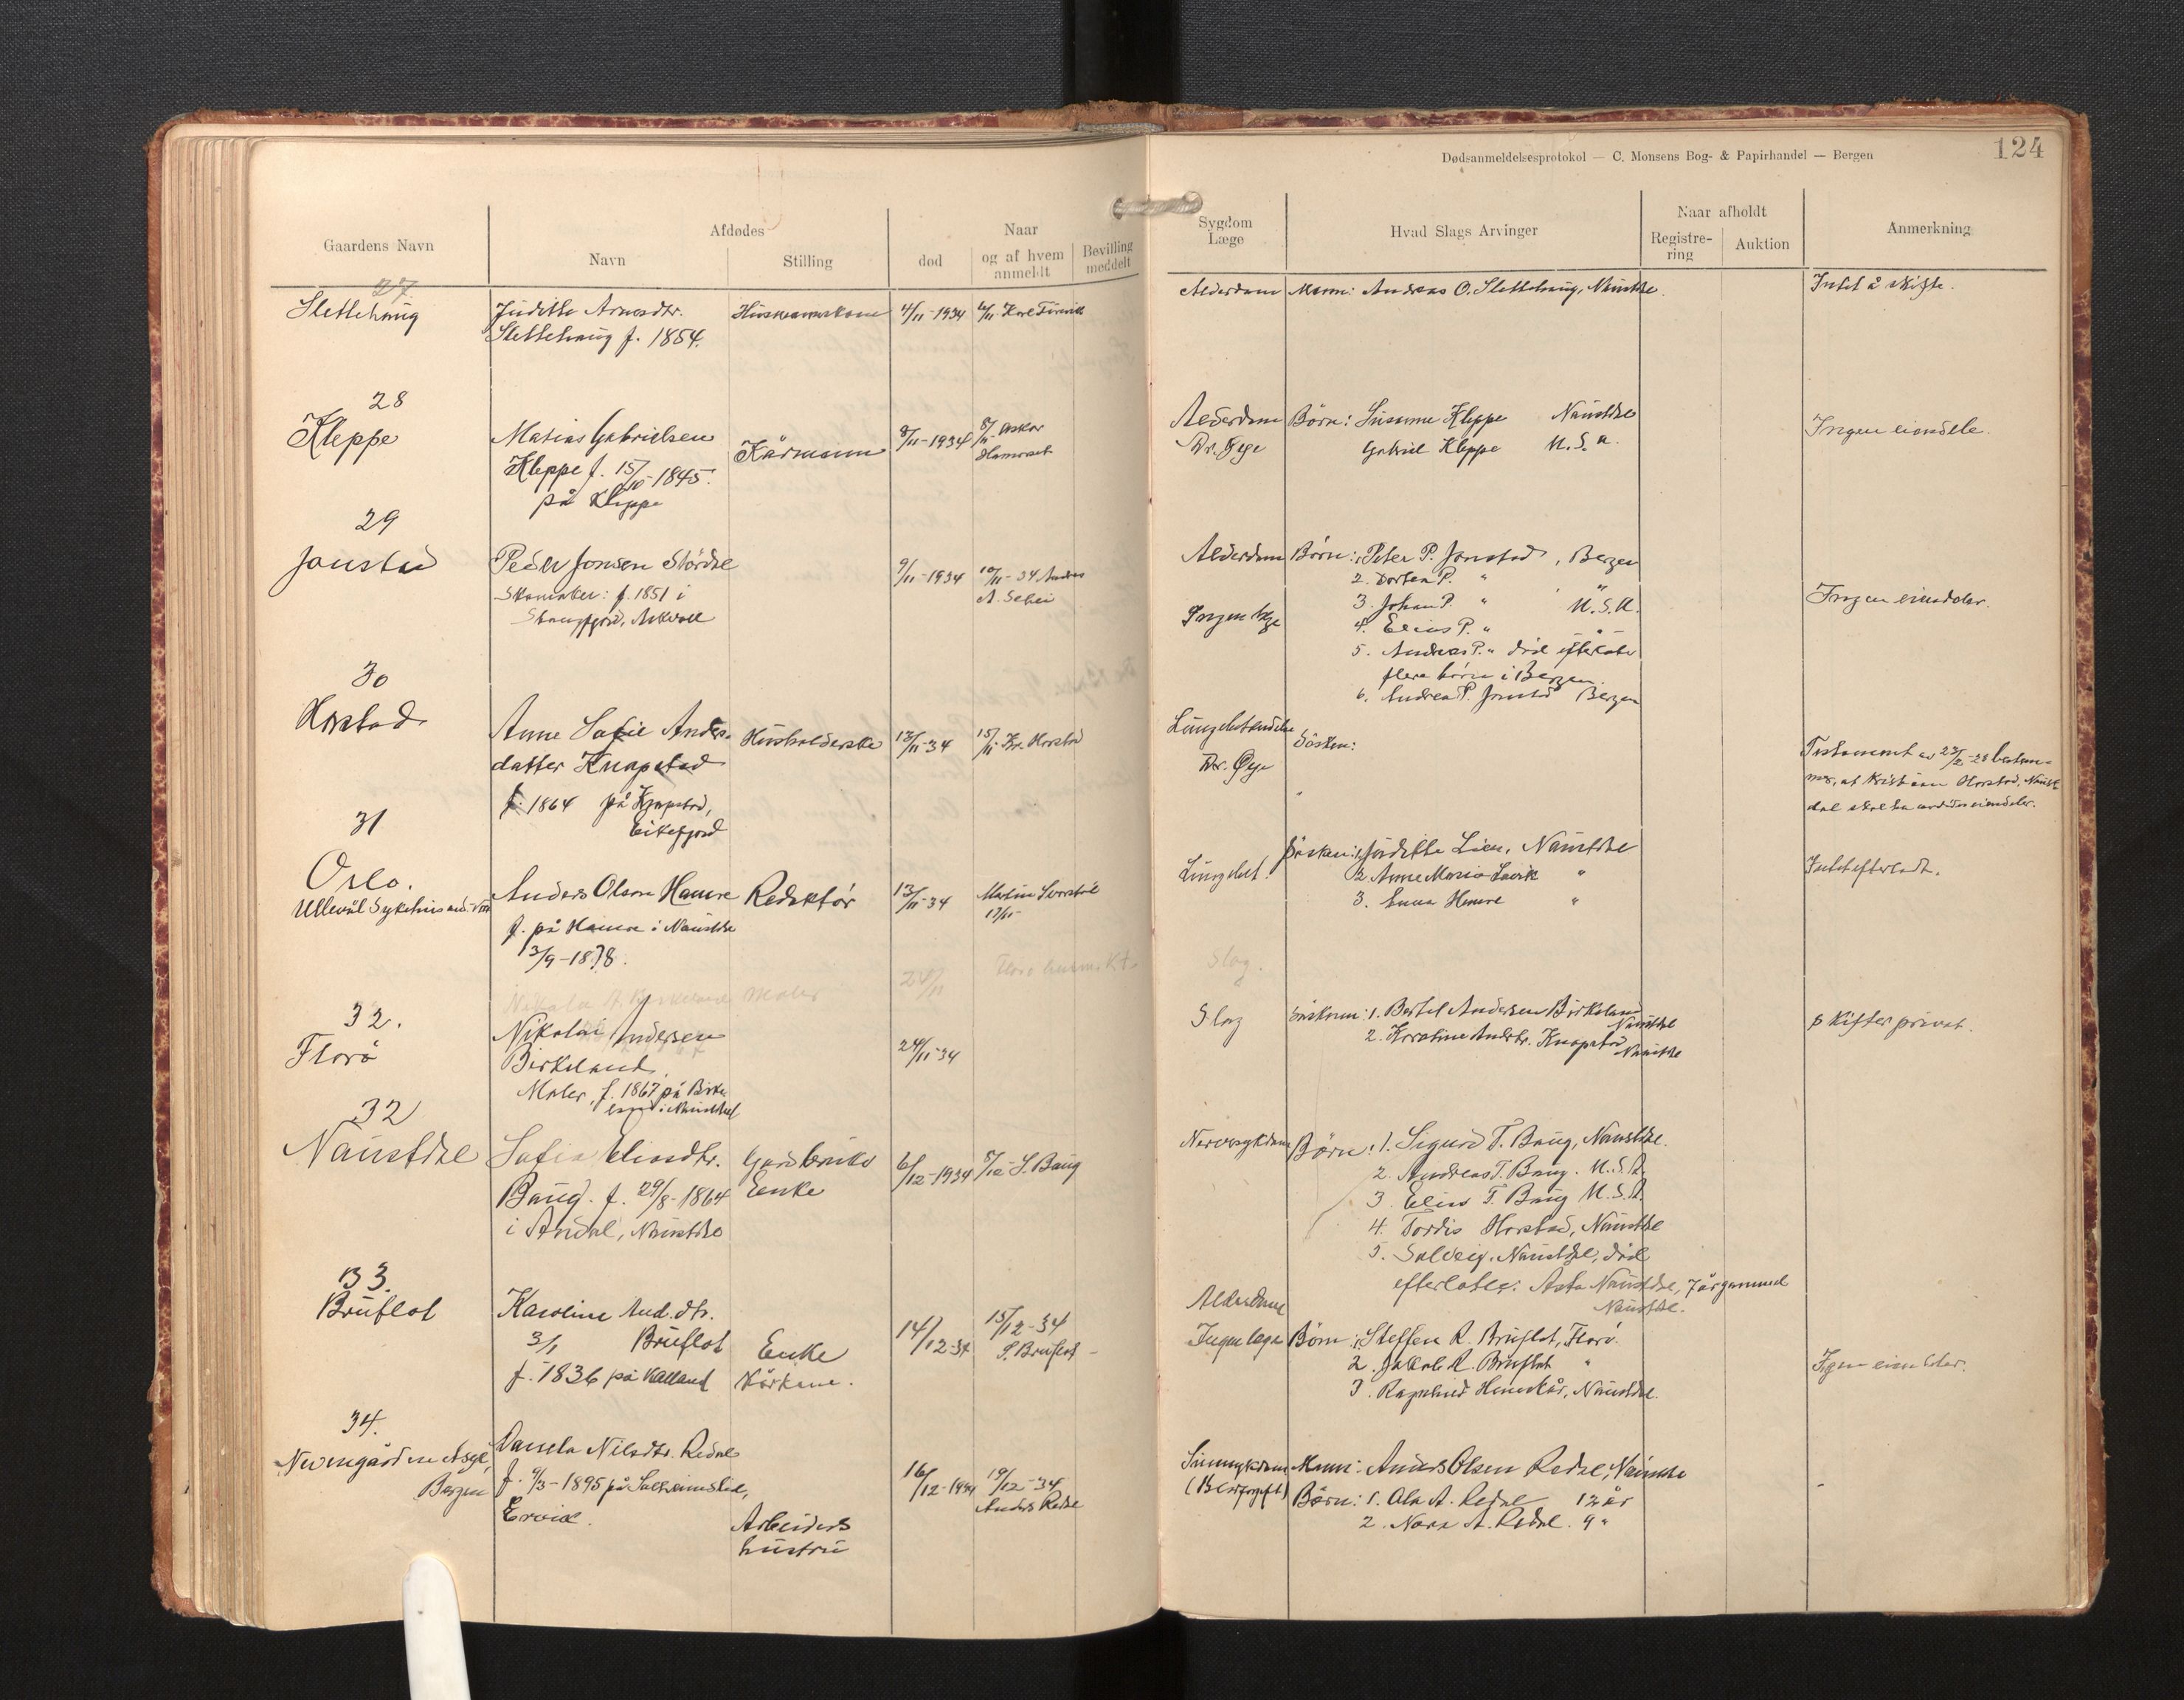 Dødsanmeldelsesprotokol — C. Monsens Bog- & Papirhandel — Bergen
124
Gaardens Navn
Afdødes
Navn
Stilling
Naar
død
og af hvem anmeldt
Bevilling meddelt
Sygdom
Læge
Hvad Slags Arvinger
Naar afholdt
Registre-
ring
Auktion
Anmerkning
27
Slettehaug
Juditte Arnesdtr.
Slettehaug f. 1854.
Husmannskone
4/11-1934
6/11
Alderdom
Mann: Andreas O. Slettehaug, Naustdal
Intet å skifte.
28
Kleppe
Matias Gabrielsen
Kleppe f. 15/10-1845.
på Kleppe
Kårmann
8/11-1934
8/11
Alderdom
Dr. Øye
Børn: Susanne Kleppe Naustdal
Gabriel Kleppe U.S.A.
Ingen eiendele.
29
Jonstad
Peder Jonsen
Skomaker: f. 1851 i
Stangfjord, Askvoll
9/11-1934
10/11-34
Alderdom
Ingen læge
Børn: 1. Peter P. Jonstad, Bergen
2. P. "
3. Johan P. " U.S.A.
4. Elias P. " "
5. Andreas P. " død efterlater
flere børn i Bergen.
6. Andrea P. Jonstad Bergen
Ingen eiendeler.
30
Horstad
Anne Sofie Anders-
datter Knapstad
f. 1864 på Knapstad,
Eikefjord
Husholderske
13/11-34
15/11 Kr. Horstad
Lungebetendelse
Dr. Øye
Søsken:
Testament av 23/2-28 bestem-
mer, at Kristian Horstad, Naust
dal skal ha eiendeler.
31
Oslo.
Ullevål Sykehus avd. VIII
Anders Olson Hamre
f. på Hamre i Naustdal
13/9-1878.
Redaktør
13/11-34
17/11
Lungebet.
Søsken: 1. Juditte Lien, Naustdal
2. Anne Maria "
3. Hamre "
Intet efterladt.
24/11
Maler
Slag.
32.
Florø
Nikolai Andersen
Birkeland
Maler, f. 1867 på Birke
land i Naustdal
24/11-34
Slag
Søsken: 1. Bertel Andersen Birkeland
Naustdal
2. Andrdtr. Knapstad
Naustdal
Skifter privat.
32
Naustdal
Sofia Eliasdtr.
Baug. f. 29/8-1864
i Andal, Naustdal
Gardbruker
Enke
6/12-1934
8/12 S. Baug
Nervesykdom
Børn: 1. Sigurd T. Baug, Naustdal.
2. Andreas T. Baug. U.S.A.
3. Elias T. Baug U.S.A.
4. Tordis Horstad, Naustdal
5. Solveig Naustdal, død
efterlater: Asta Naustdal, 7 år gammel
Naustdal.
33.
Bruflot
Karoline And.dtr.
3/1 Bruflot
f. 1836 på Kalland
Enke
Kårkone.
14/12-34
15/12-34
S. Bruflot
Alderdom
Ingen læge
Børn: 1. Steffen R. Bruflot, Florø.
2. Jakob R. Bruflot "
3. Ragnhild, Naustdal.
Ingen eiendeler.
34.
Neevengården Asyl,
Bergen
Nilsdtr. Redal
f. 9/3-1895 på
Arbeiders
hustru
16/12-1934
19/12-34
Anders Redal
Sinnsykdom
Mann: Anders Olsen Redal, Naustdal
Børn: 1. Ola A. Redal 12 år
2. Nora A. Redal. 9 "